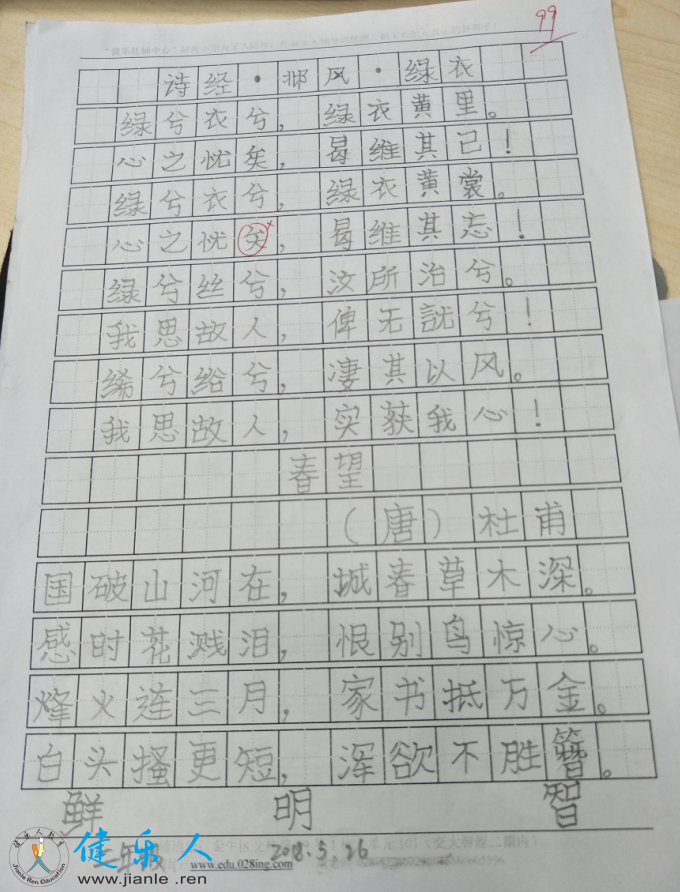 99
诗经·邶风·绿衣
绿兮衣兮，绿衣黄里。
心之忧矣，曷维其已！
绿兮衣兮，绿衣黄裳。
心之忧矣，曷维其忘！
绿兮丝兮，汝所治兮。
我思故人，俾无訧兮！
絺兮绤兮，凄其以风。
我思故人，实获我心！
春望
（唐）杜甫
国破山河在，城春草木深。
感时花溅泪，恨别鸟惊心。
烽火连三月，家书抵万金。
白头搔更短，浑欲不胜簪。
鲜 明 智
健乐人
www.jianle.ren
www.edu.028ing.com
2018.5.26